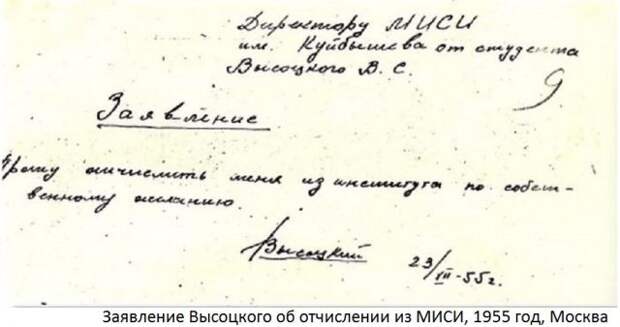 Директору МИСИ
им. Куйбышева от студента
Высоцкого В. С.
9
Заявление
Прошу отчислить меня из института по собст-
венному желанию.
Высоцкий 23/XII-55г.
Заявление Высоцкого об отчислении из МИСИ, 1955 год, Москва